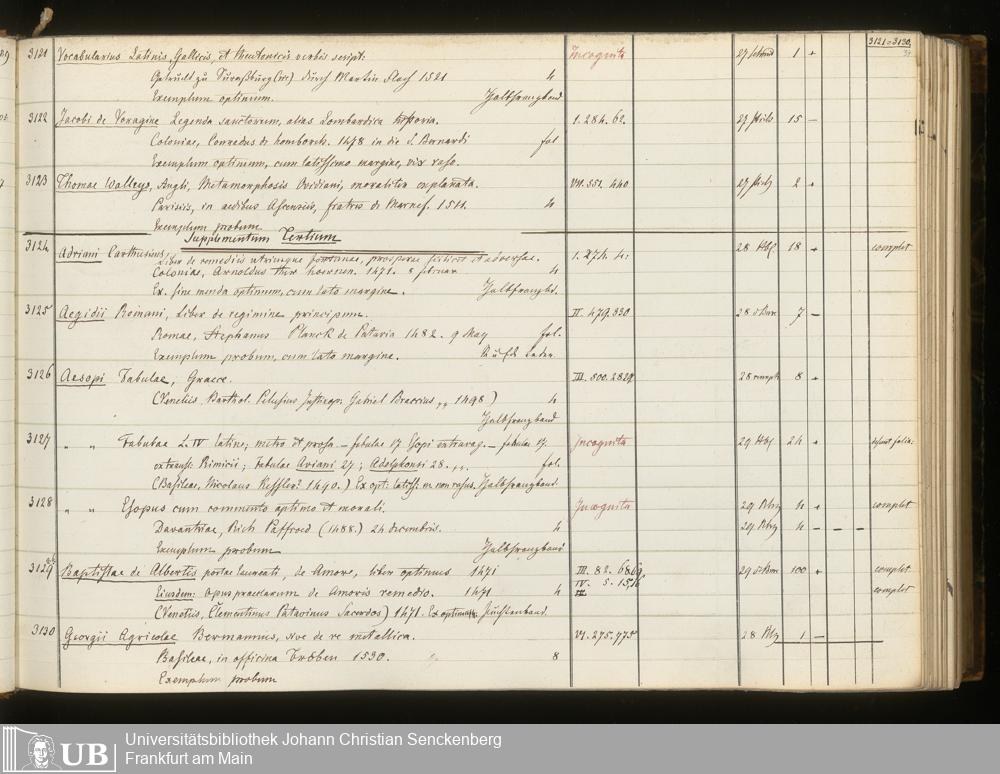 3121=3130.
3121 Vocabularius Latinis, Gallicis, et Theutonicis verbis script: Incognita 1 +
Gedruckt zu Straßburg (sic) durch Martin Flach 1521 4
Exemplum optimum. Halbfranzband
3122 Jacobi de Voragine Legenda sanctorum, alias Lombardica hystoria. 1. 284. 62. 15 —
Coloniae, Conradus de homborch. 1478 in die S. Bernardi fol
Exemplum optimum, cum latissimo margine, vix raso.
3123 Thomae Walleys, Angli, Metamorphosis Ovidiani, moraliter explanata. VII. 551. 440 2 +
Parisiis, in aedibus Ascensiis, fratris de Marnef. 1511. 4
Exemplum probum
Supplementum Tertium
3124 Adriani Carthusiani, Liber de remediis utriusque fortunae, prosperae scilicet et adversae. 1. 274. 4: 28 18 + complet
Coloniae, Arnoldus ther hoernen. 1471. 8 februar 4
Ex. sine menda optimum, cum lato margine. Halbfranzbd.
3125 Aegidii Romani, Liber de regimine principum. II. 479. 330 28 7 —
Romae, Stephanus Planck de Patavia 1482. 9 May fol.
Exemplum probum, cum lato margine.
3126 Aesopi Fabulae, Graece. III. 500. 2829 28 8 +
(Venetiis Barthol. Pelusius Gabriel Braccius „ 1498) 4
Halbfranzband
3127 „ „ Fabulae L. IV latine; metro et prosa – fabulae 17 Esopi extravag. – fabulae 17. Incognita 29 24 +
Rimicii; Fabulae Aviani 27; Adelphonsi 28. fol.
(Basileae, Nicolaus Kessler? 1490.) Ex opt. latiss: m non rasus. Halbfranzband.
3128 „ „ Esopus cum commento optimo et morali. Incognita 29 4 + complet
Daventriae, Rich Paffroed (1488.) 24 decembris. 4 29 4 — — —
Exemplum probum Halbfranzband
3129 Baptistae de Albertis poetae laureati, de Amore, liber optimus 1471 III. 82. 6869. 29 100 + complet
Eiusdem: opus praeclarum de Amoris remedio. 1471 4 IV. 5. 15,16 complet
(Venetiis, Clementinus Patavinus Sacerdos) 1471. Ex optimum
3130 Georgii Agricolae Bermannus, sive de re metallica. VI. 275. 775 28 1 —
Basileae, in officina Froben 1530. 8
Exemplum probum
UB
Universitätsbibliothek Johann Christian Senckenberg
Frankfurt am Main